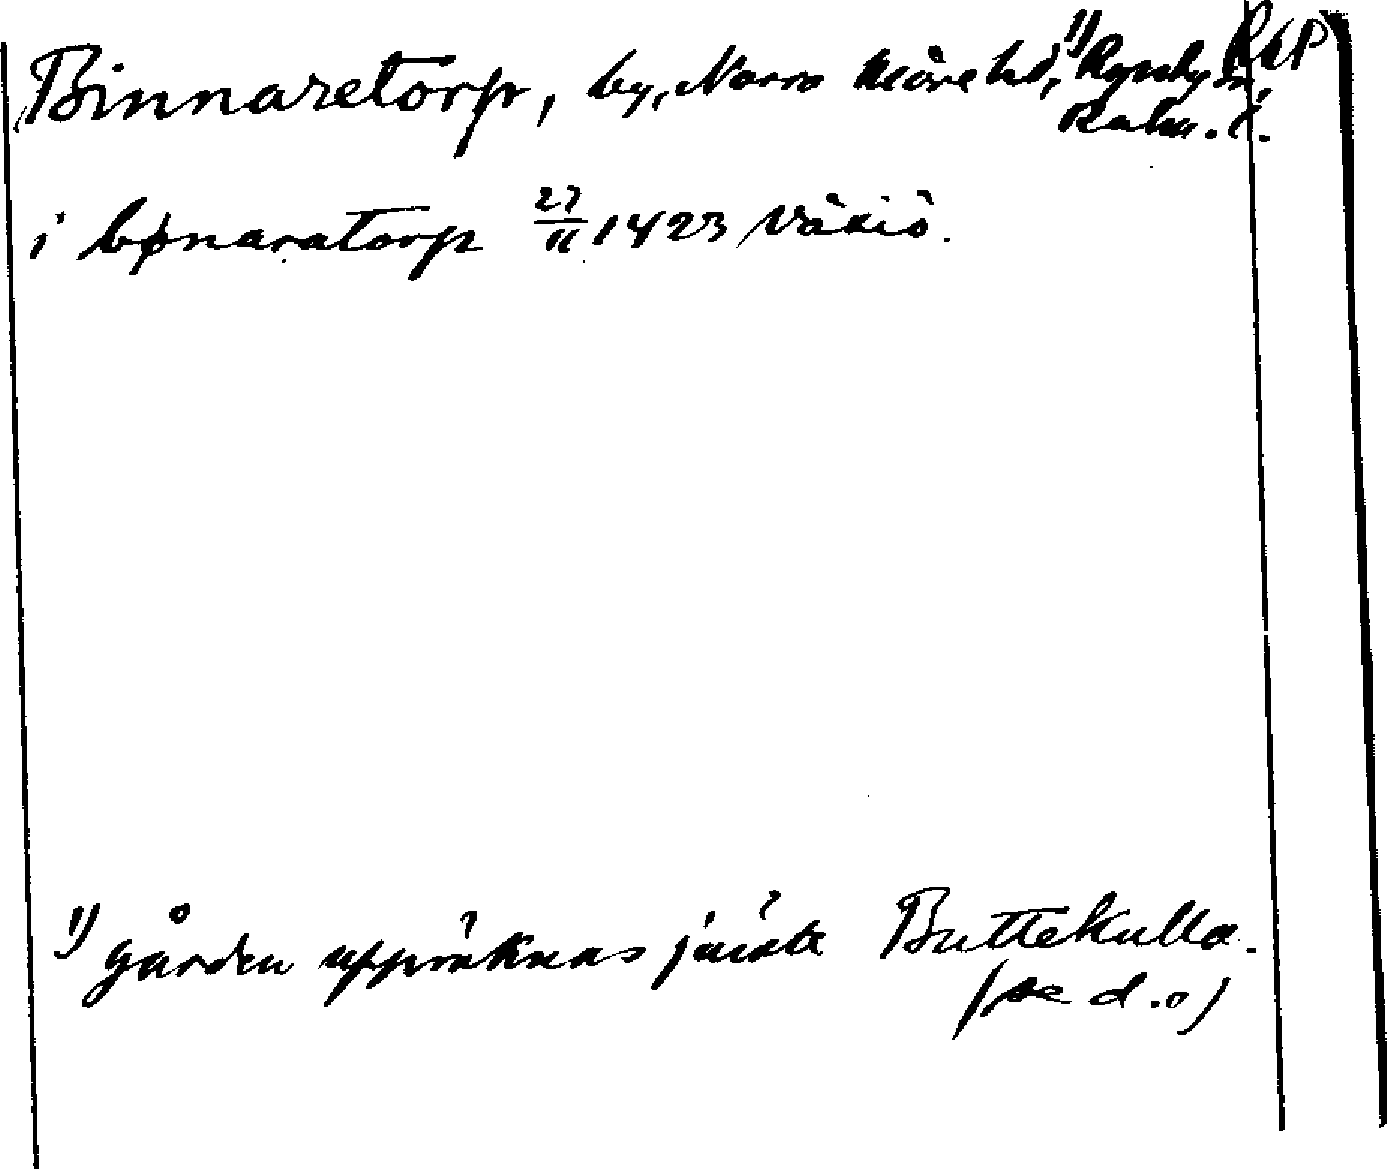 Binnaretorp, by, Norra Möre hd, 1) Ryssby sn,
Kalm. l.
i bønaratorp 27/11 1423 Växiö.
1) gården uppräknas jämte Buttekulla.
(se d.o)